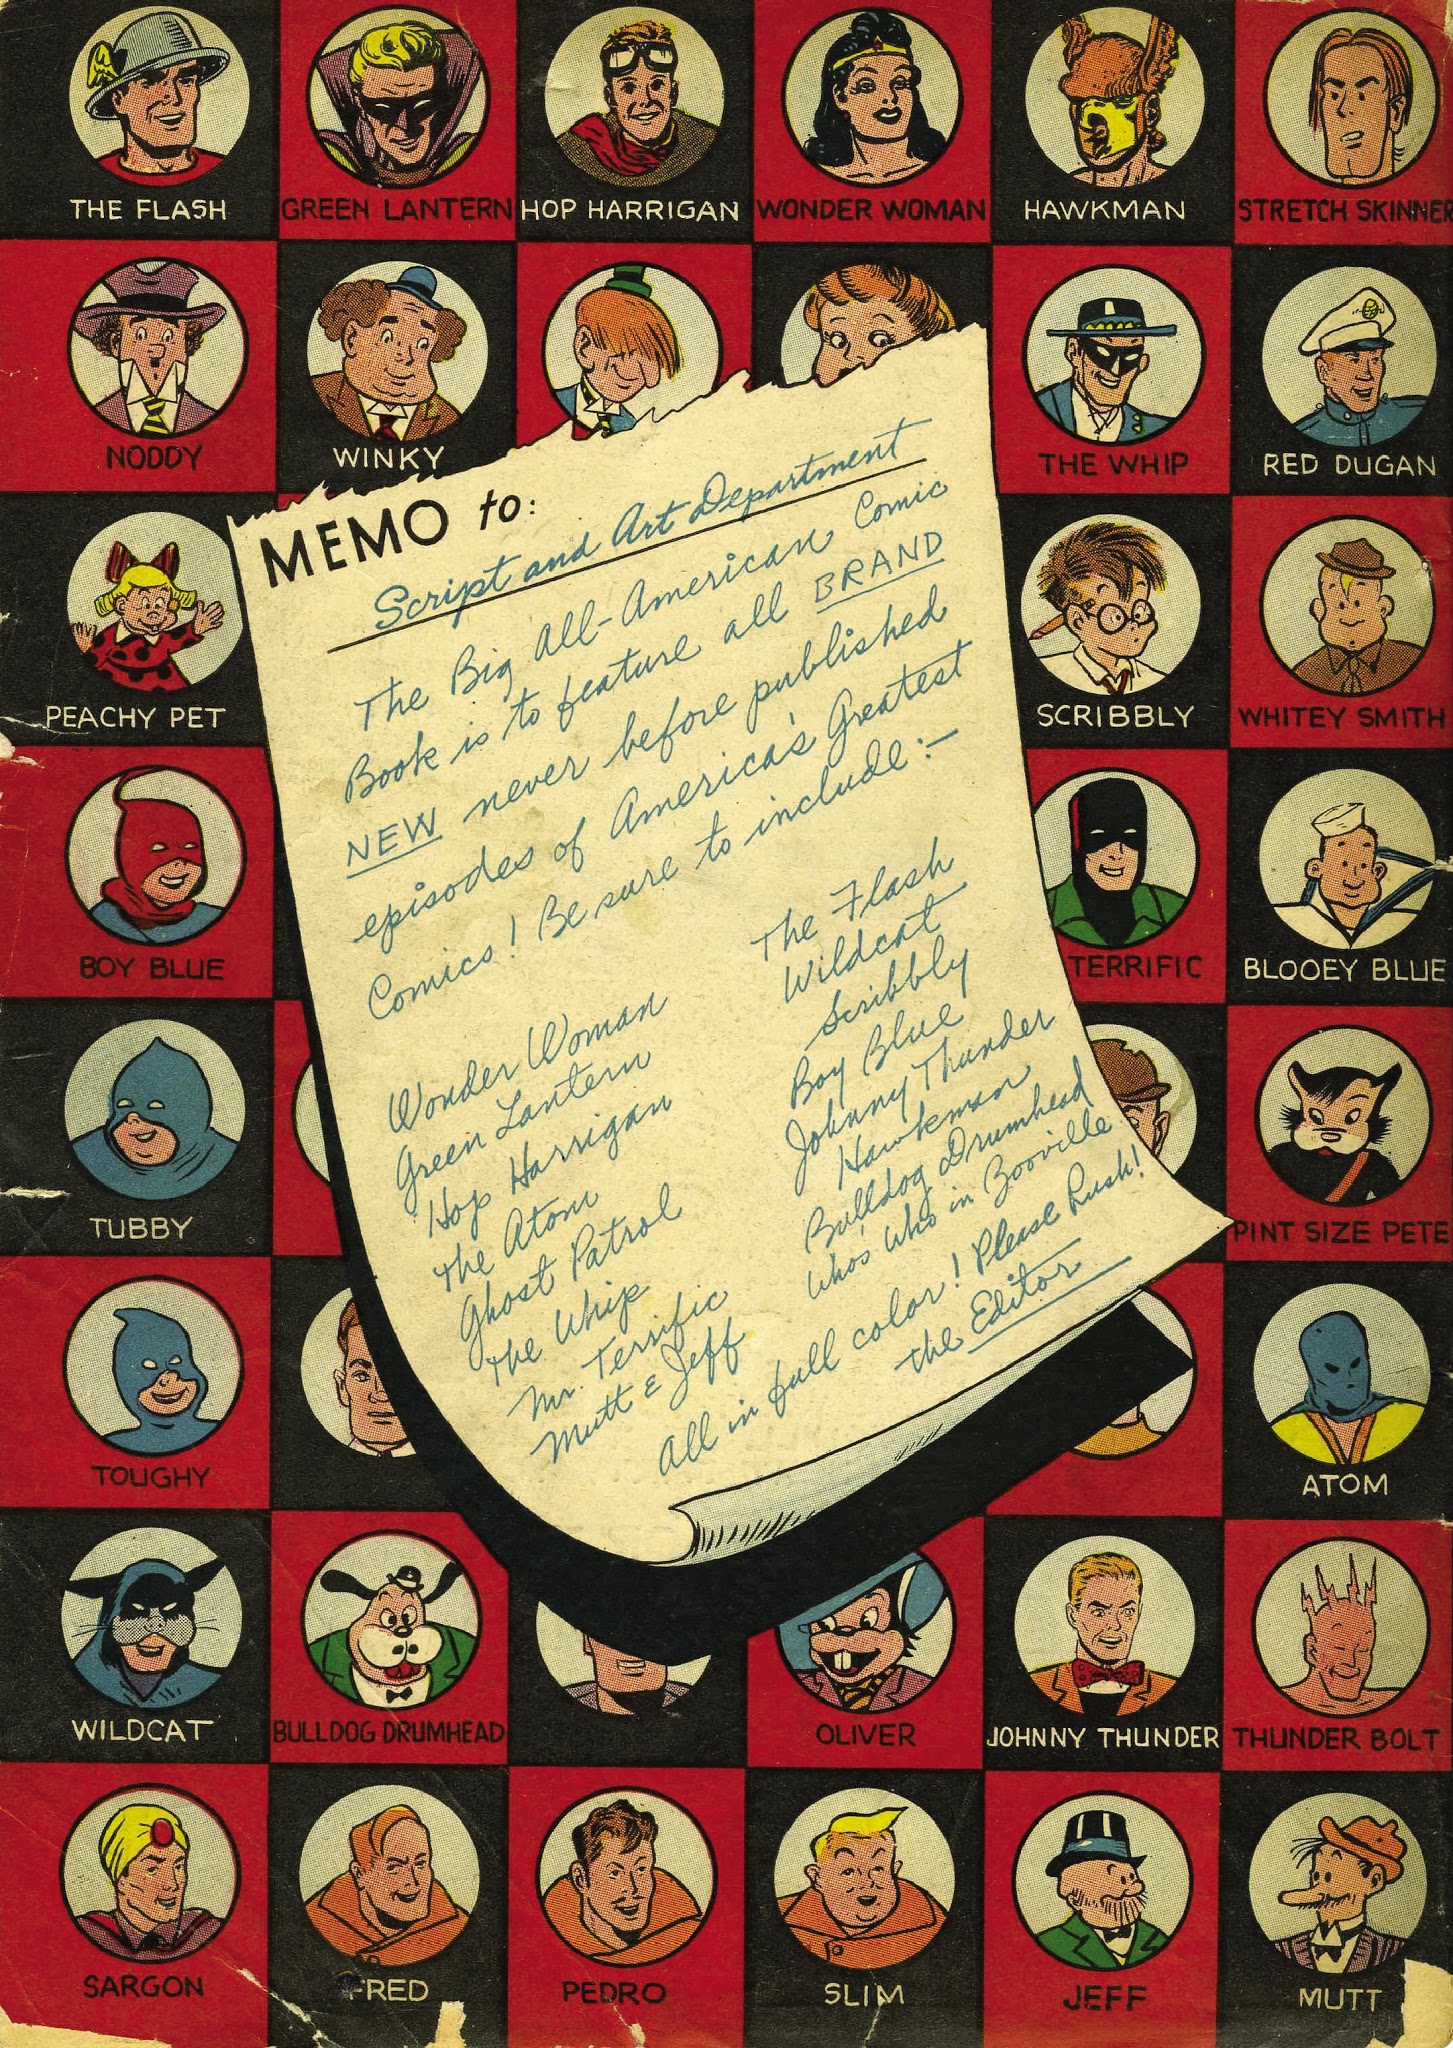 THE FLASH
GREEN LANTERN
HOP HARRIGAN
WONDER WOMAN
HAWKMAN
STRETCH SKINNER
NODDY
WINKY
THE WHIP
RED DUGAN
PEACHY PET
SCRIBBLY
WHITEY SMITH
BOY BLUE
TERRIFIC
BLOOEY BLUE
TUBBY
PINT SIZE PETE
TOUGHY
ATOM
WILDCAT
BULLDOG DRUMHEAD
OLIVER
JOHNNY THUNDER
THUNDER BOLT
SARGON
FRED
PEDRO
SLIM
JEFF
MUTT
MEMO to:
Script and Art Department
The Big All-American Comic
Book is to feature all BRAND
NEW never before published
episodes of America's Greatest
Comics! Be sure to include:-
Wonder Woman
Green Lantern
Hop Harrigan
The Atom
Ghost Patrol
The Whip
Mr. Terrific
Mutt & Jeff
The Flash
Wildcat
Scribbly
Boy Blue
Johnny Thunder
Hawkman
Bulldog Drumhead
Who's Who in Booville
All in full color! Please Rush!
the Editor